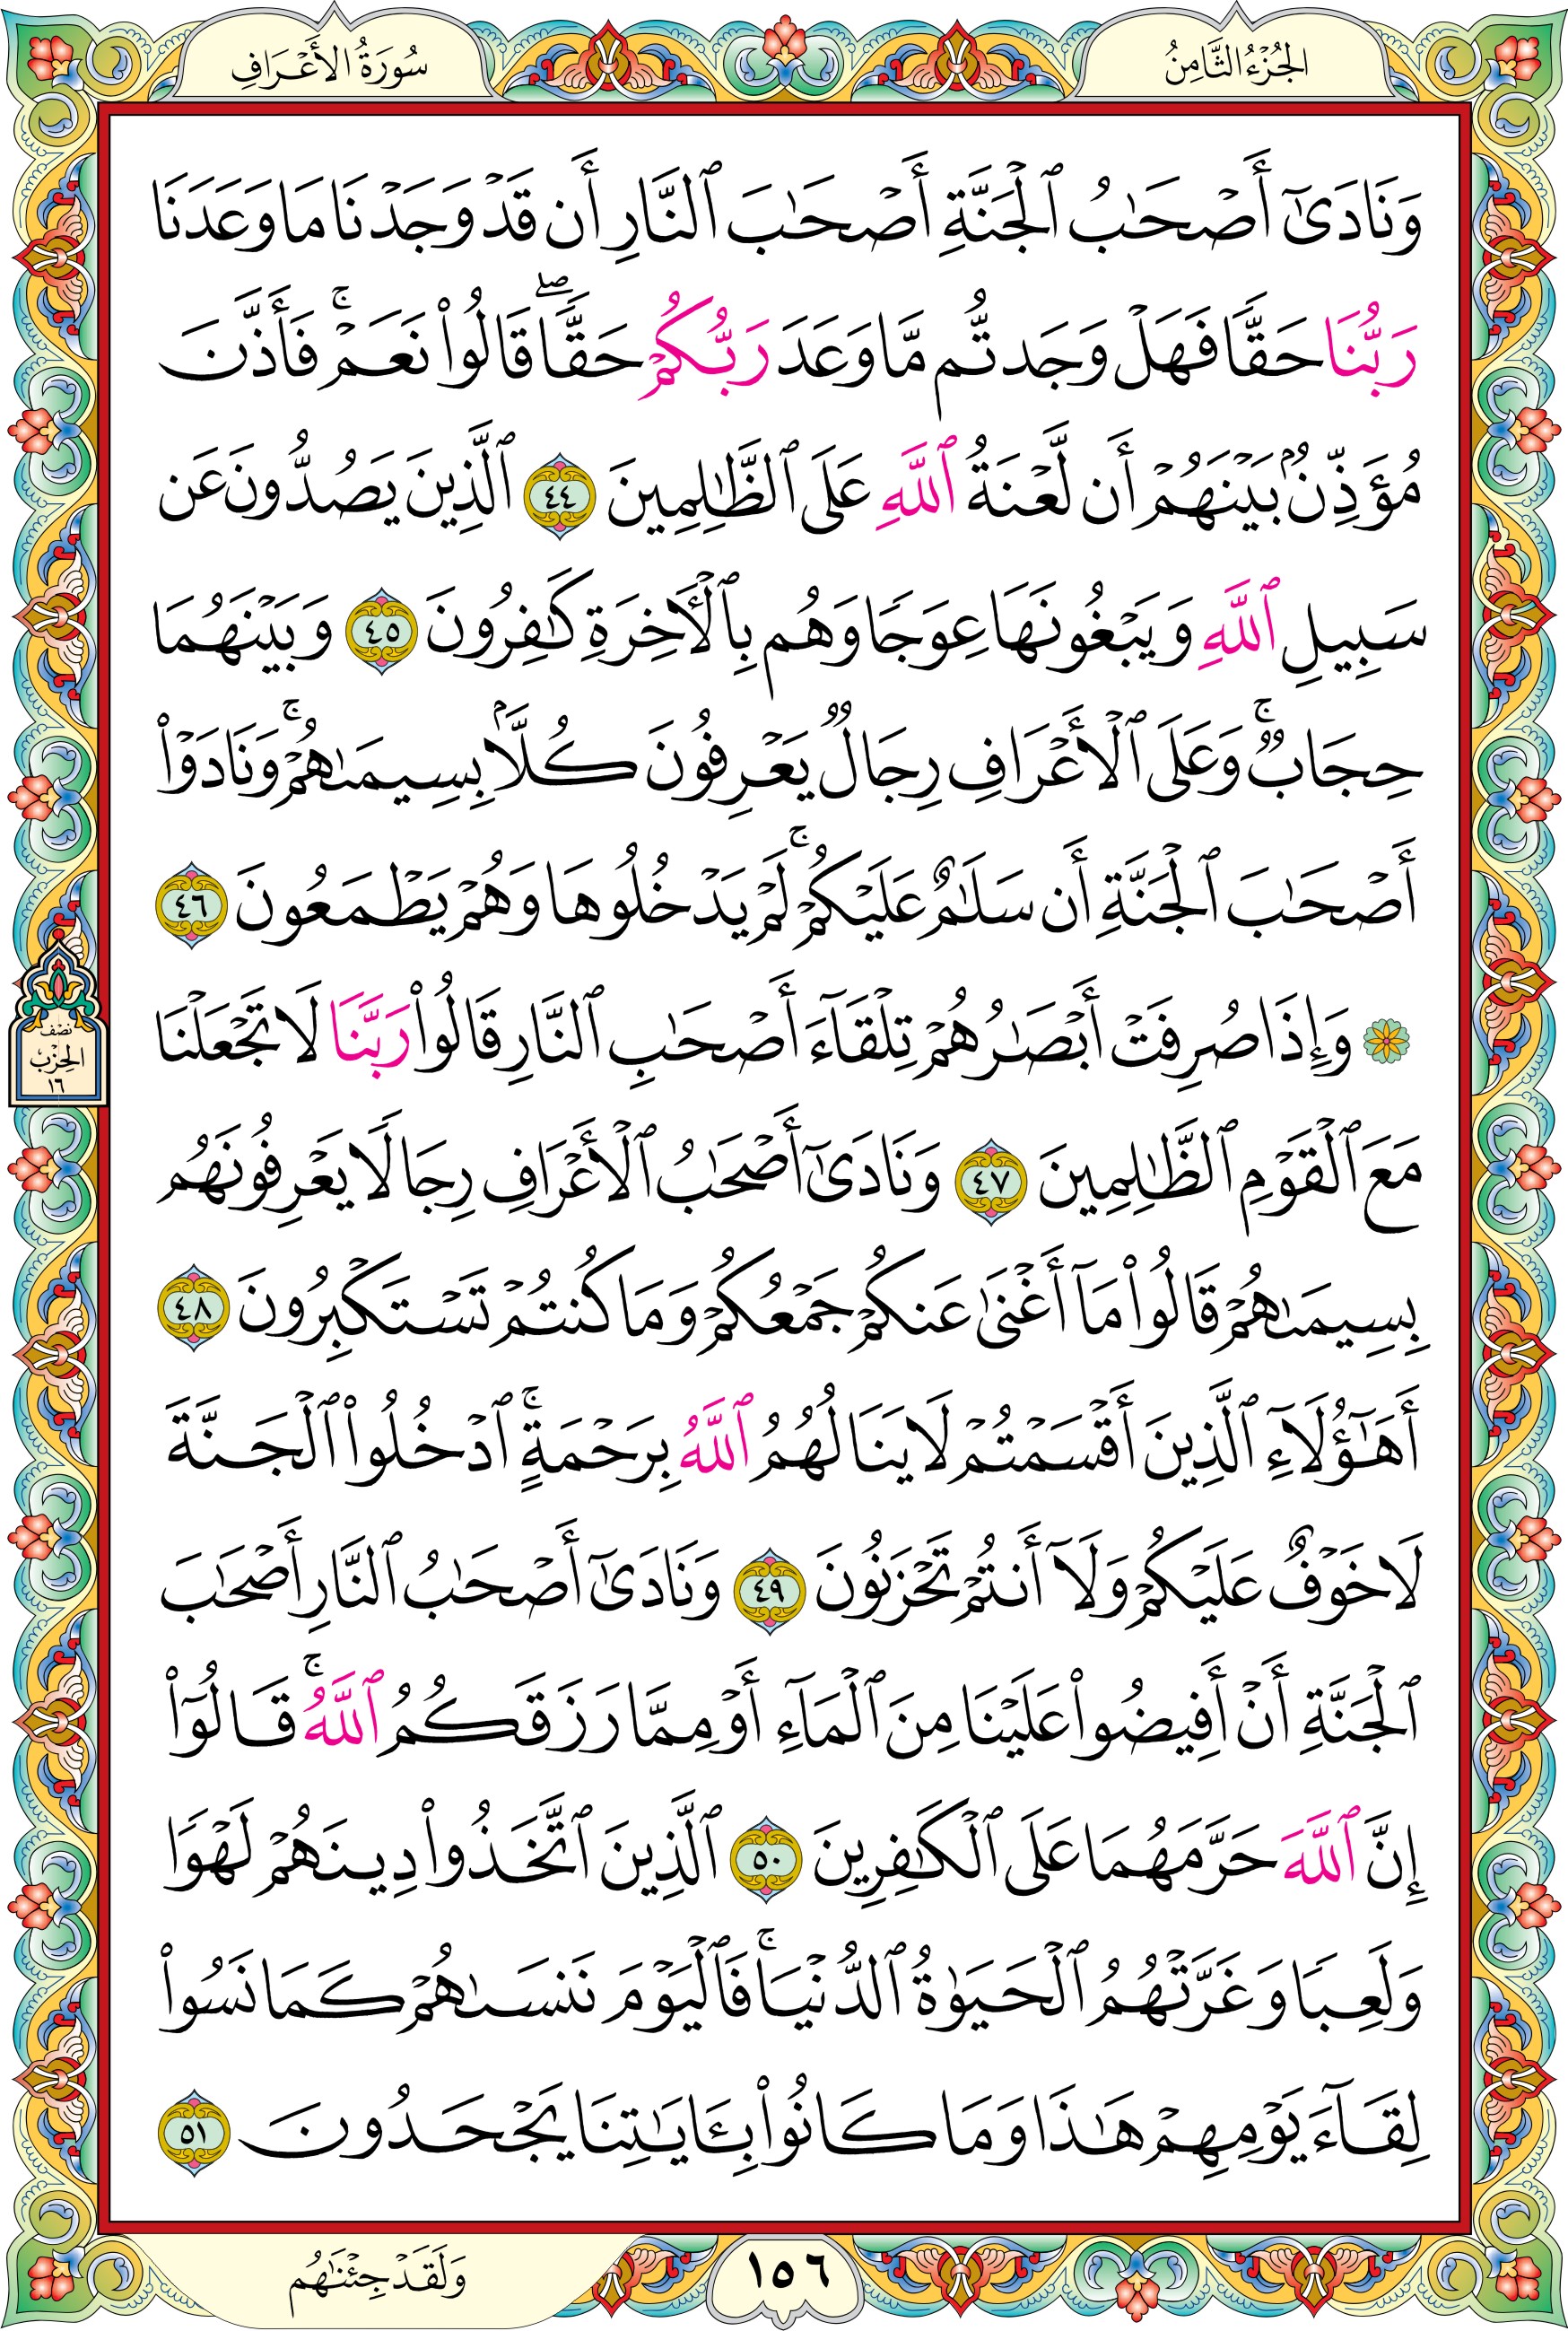 الجُزْءُ الثَّامِنُ
سُورَةُ الأَعْرَافِ
وَنَادَىٰٓ أَصْحَٰبُ ٱلْجَنَّةِ أَصْحَٰبَ ٱلنَّارِ أَن قَدْ وَجَدْنَا مَا وَعَدَنَا
رَبُّنَا حَقًّا فَهَلْ وَجَدتُّم مَّا وَعَدَ رَبُّكُمْ حَقًّا ۖ قَالُوا۟ نَعَمْ ۚ فَأَذَّنَ
مُؤَذِّنٌۢ بَيْنَهُمْ أَن لَّعْنَةُ ٱللَّهِ عَلَى ٱلظَّٰلِمِينَ ٤٤ ٱلَّذِينَ يَصُدُّونَ عَن
سَبِيلِ ٱللَّهِ وَيَبْغُونَهَا عِوَجًا وَهُم بِٱلْأَخِرَةِ كَٰفِرُونَ ٤٥ وَبَيْنَهُمَا
حِجَابٌ ۚ وَعَلَى ٱلْأَعْرَافِ رِجَالٌ يَعْرِفُونَ كُلًّۢا بِسِيمَىٰهُمْ ۚ وَنَادَوْا۟
أَصْحَٰبَ ٱلْجَنَّةِ أَن سَلَٰمٌ عَلَيْكُمْ ۚ لَمْ يَدْخُلُوهَا وَهُمْ يَطْمَعُونَ ٤٦
۞ وَإِذَا صُرِفَتْ أَبْصَٰرُهُمْ تِلْقَآءَ أَصْحَٰبِ ٱلنَّارِ قَالُوا۟ رَبَّنَا لَا تَجْعَلْنَا
نصْف
الحِزْب
١٦
مَعَ ٱلْقَوْمِ ٱلظَّٰلِمِينَ ٤٧ وَنَادَىٰٓ أَصْحَٰبُ ٱلْأَعْرَافِ رِجَالًا يَعْرِفُونَهُم
بِسِيمَىٰهُمْ قَالُوا۟ مَآ أَغْنَىٰ عَنكُمْ جَمْعُكُمْ وَمَا كُنتُمْ تَسْتَكْبِرُونَ ٤٨
أَهَٰٓؤُلَآءِ ٱلَّذِينَ أَقْسَمْتُمْ لَا يَنَالُهُمُ ٱللَّهُ بِرَحْمَةٍ ۚ ٱدْخُلُوا۟ ٱلْجَنَّةَ
لَا خَوْفٌ عَلَيْكُمْ وَلَآ أَنتُمْ تَحْزَنُونَ ٤٩ وَنَادَىٰٓ أَصْحَٰبُ ٱلنَّارِ أَصْحَٰبَ
ٱلْجَنَّةِ أَنْ أَفِيضُوا۟ عَلَيْنَا مِنَ ٱلْمَآءِ أَوْ مِمَّا رَزَقَكُمُ ٱللَّهُ ۚ قَالُوٓا۟
إِنَّ ٱللَّهَ حَرَّمَهُمَا عَلَى ٱلْكَٰفِرِينَ ٥٠ ٱلَّذِينَ ٱتَّخَذُوا۟ دِينَهُمْ لَهْوًا
وَلَعِبًا وَغَرَّتْهُمُ ٱلْحَيَوٰةُ ٱلدُّنْيَا ۚ فَٱلْيَوْمَ نَنسَىٰهُمْ كَمَا نَسُوا۟
لِقَآءَ يَوْمِهِمْ هَٰذَا وَمَا كَانُوا۟ بِـَٔايَٰتِنَا يَجْحَدُونَ ٥١
وَلَقَدْ جِئْنَٰهُم
١٥٦